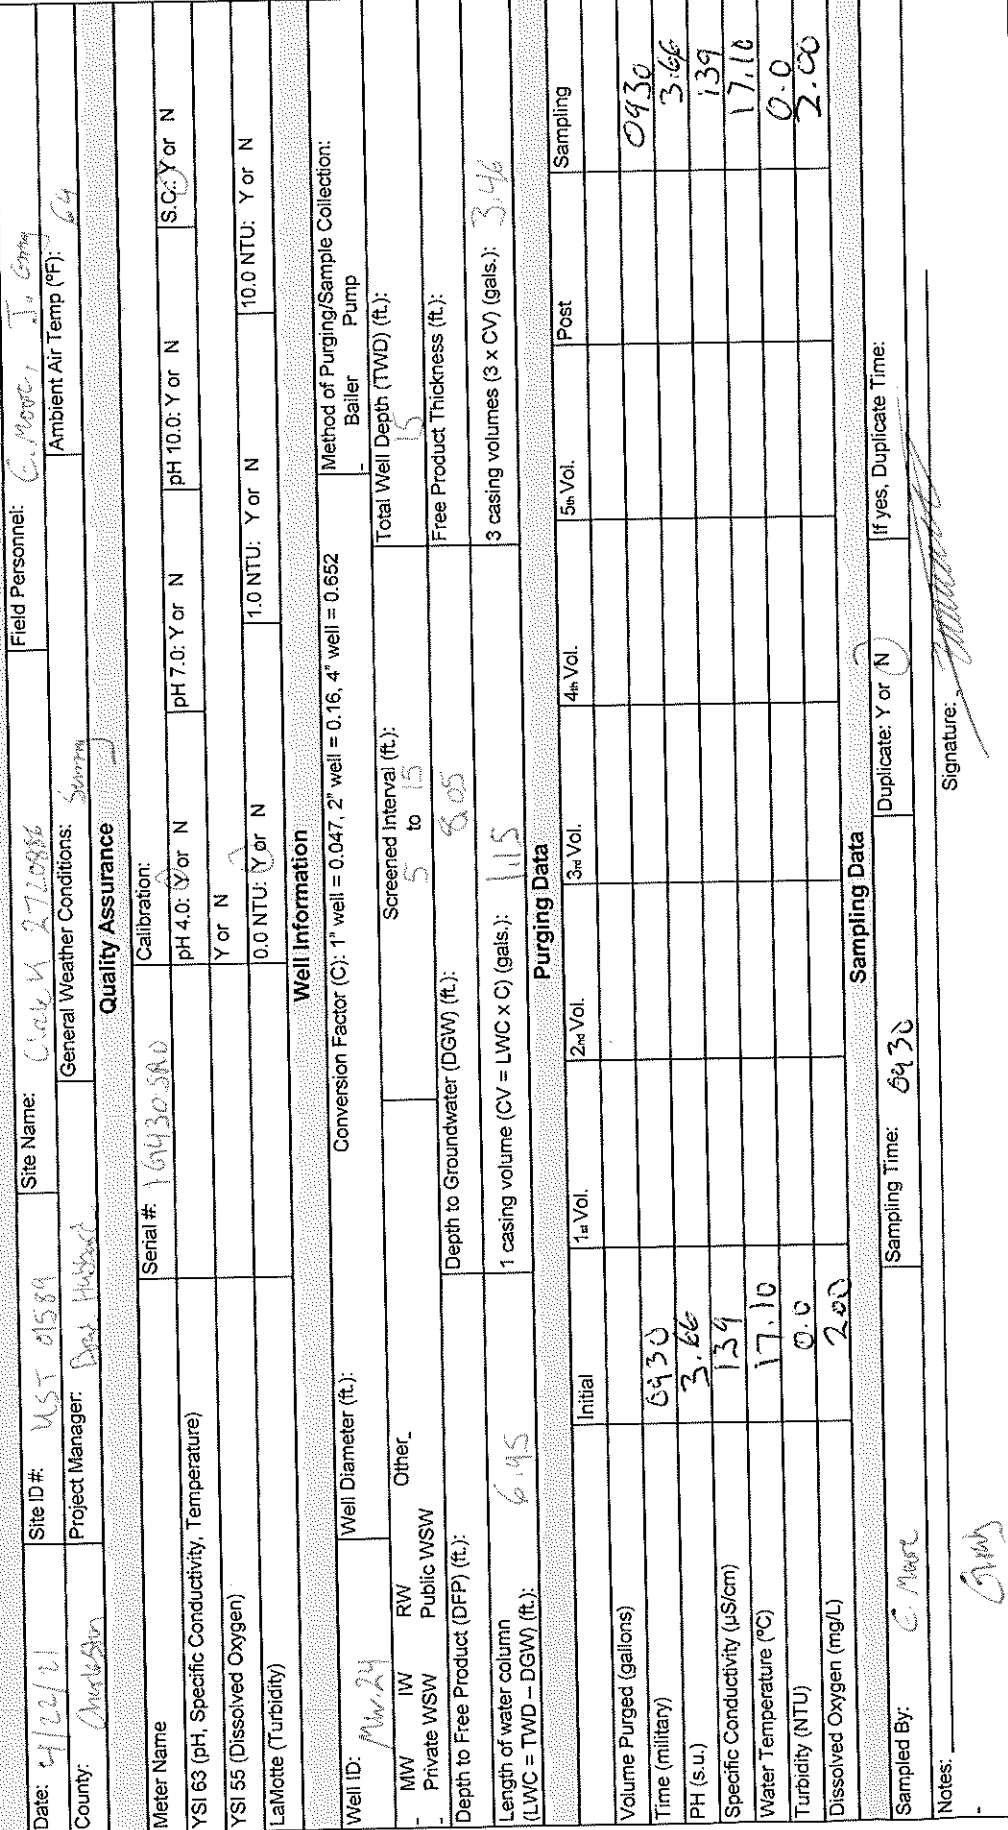 Date: 4/22/21 Site ID#: UST 01589 Site Name: 2720886 Field Personnel: E. Moore, J.
County: Charleston Project Manager: General Weather Conditions: Sunny Ambient Air Temp (ºF): 64
Quality Assurance
Meter Name Serial #: Calibration:
YSI 63 (pH, Specific Conductivity, Temperature) pH 4.0: Y or N pH 7.0: Y or N pH 10.0: Y or N S.C.: Y or N
YSI 55 (Dissolved Oxygen) Y or N
LaMotte (Turbidity) 0.0 NTU: Y or N 1.0 NTU: Y or N 10.0 NTU: Y or N
Well Information
Well ID: MW-24 Well Diameter (ft.): Conversion Factor (C): 1" well = 0.047, 2" well = 0.16, 4" well = 0.652 Method of Purging/Sample Collection:
- Bailer Pump
- MW IW RW Other_ Screened Interval (ft.): Total Well Depth (TWD) (ft.):
- Private WSW Public WSW 5 to 15 15
Depth to Free Product (DFP) (ft.): Depth to Groundwater (DGW) (ft.): 8.05 Free Product Thickness (ft.):
Length of water column 6.95 1 casing volume (CV = LWC x C) (gals.): 1.15 3 casing volumes (3 x CV) (gals.): 3.46
(LWC = TWD – DGW) (ft.):
Purging Data
Initial 1st Vol. 2nd Vol. 3rd Vol. 4th Vol. 5th Vol. Post Sampling
Volume Purged (gallons)
Time (military) 0930 0930
PH (s.u.) 3.66 3.66
Specific Conductivity (µS/cm) 139 139
Water Temperature (ºC) 17.10 17.10
Turbidity (NTU) 0.0 0.0
Dissolved Oxygen (mg/L) 2.00 2.00
Sampling Data
Sampled By: E. Moore Sampling Time: 0930 Duplicate: Y or N If yes, Duplicate Time:
Notes: Signature:
-